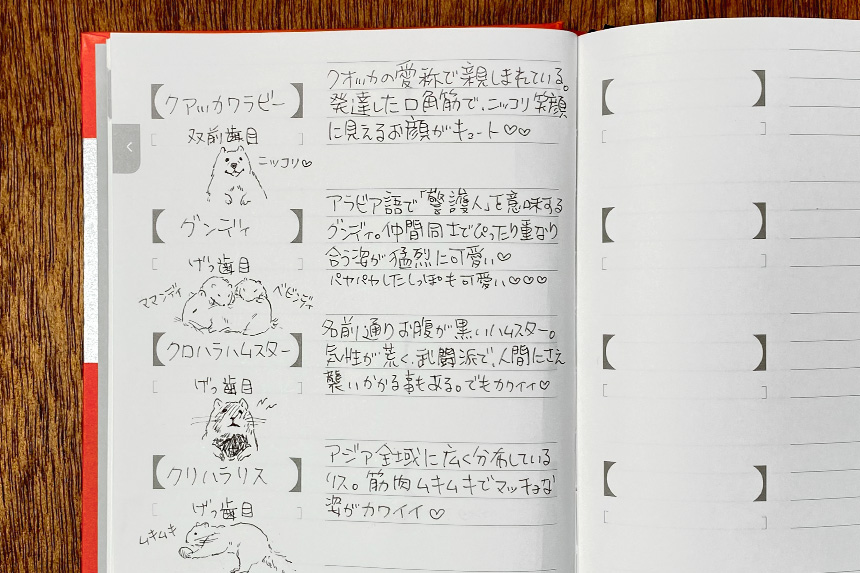 クアッカワラビー
双前歯目
ニッコリ♡
クオッカの愛称で親しまれている。
発達した口角筋で、ニッコリ笑顔
に見えるお顔がキュート♡♡
グンディ
げっ歯目
ママンディ
ベビンディ
アラビア語で「警護人」を意味する
グンディ。仲間同士でぴったり重なり
合う姿が猛烈に可愛い♡
パヤパヤしたしっぽも可愛い♡♡♡
クロハラハムスター
げっ歯目
名前通りお腹が黒いハムスター。
気性が荒く、武闘派で、人間にさえ
襲いかかる事もある。でもカワイイ♡
クリハラリス
げっ歯目
ムキムキ
アジア全域に広く分布している
リス。筋肉ムキムキでマッチョな
姿がカワイイ♡